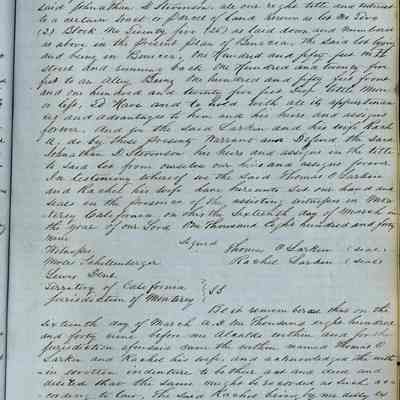 said Johnathan D. Stevenson all our right title and interest
to a certain tract or Parcel of Land known as Lot No Two
(2) Block No Twenty five (25) as laid down and numbered
as above in the present plan of Benecia, the said Lot lying
and being in Benecia, One Hundred and fifty feet on
street and running back One Hundred and twenty five
feet to an alley, Being One hundred and fifty feet front
and one hundred and twenty five feet deep little more
or less, To Have and to hold with all its appurtenan
ces and advantages to him and his heirs and assigns
forever, And for the said Larkin and his wife Rach
do by these presents Warrant and Defend the said
Johnathan D Stevenson his heirs and assigns in the title
to said Lot from ourselves our heirs and assigns forever
In testimony whereof we the said Thomas O Larkin
and Rachel his wife have hereunto set our hand and
seals in the presence of the assisting witnesses in Mon-
terey California, on this the Sixteenth day of March in
the year of our Lord One Thousand Eight hundred and forty
nine
Signed Thomas O Larkin (seal)
Witnesses Rachel Larkin (seal)
Moses Schellenberger
Lewis Dent
Territory of California
Jurisdiction of Monterey } SS
Be it remembered that on the
sixteenth day of March A.D. One Thousand eight hundred
and forty nine before me Alcalde within and for the
jurisdiction aforesaid came the within named Thomas O
Larkin and Rachel his wife, and acknowledged the with
-in written indenture to be their act and deed and
desired that the same might be recorded as such acc
-ording to Law, The said Rachel being by me duly ex